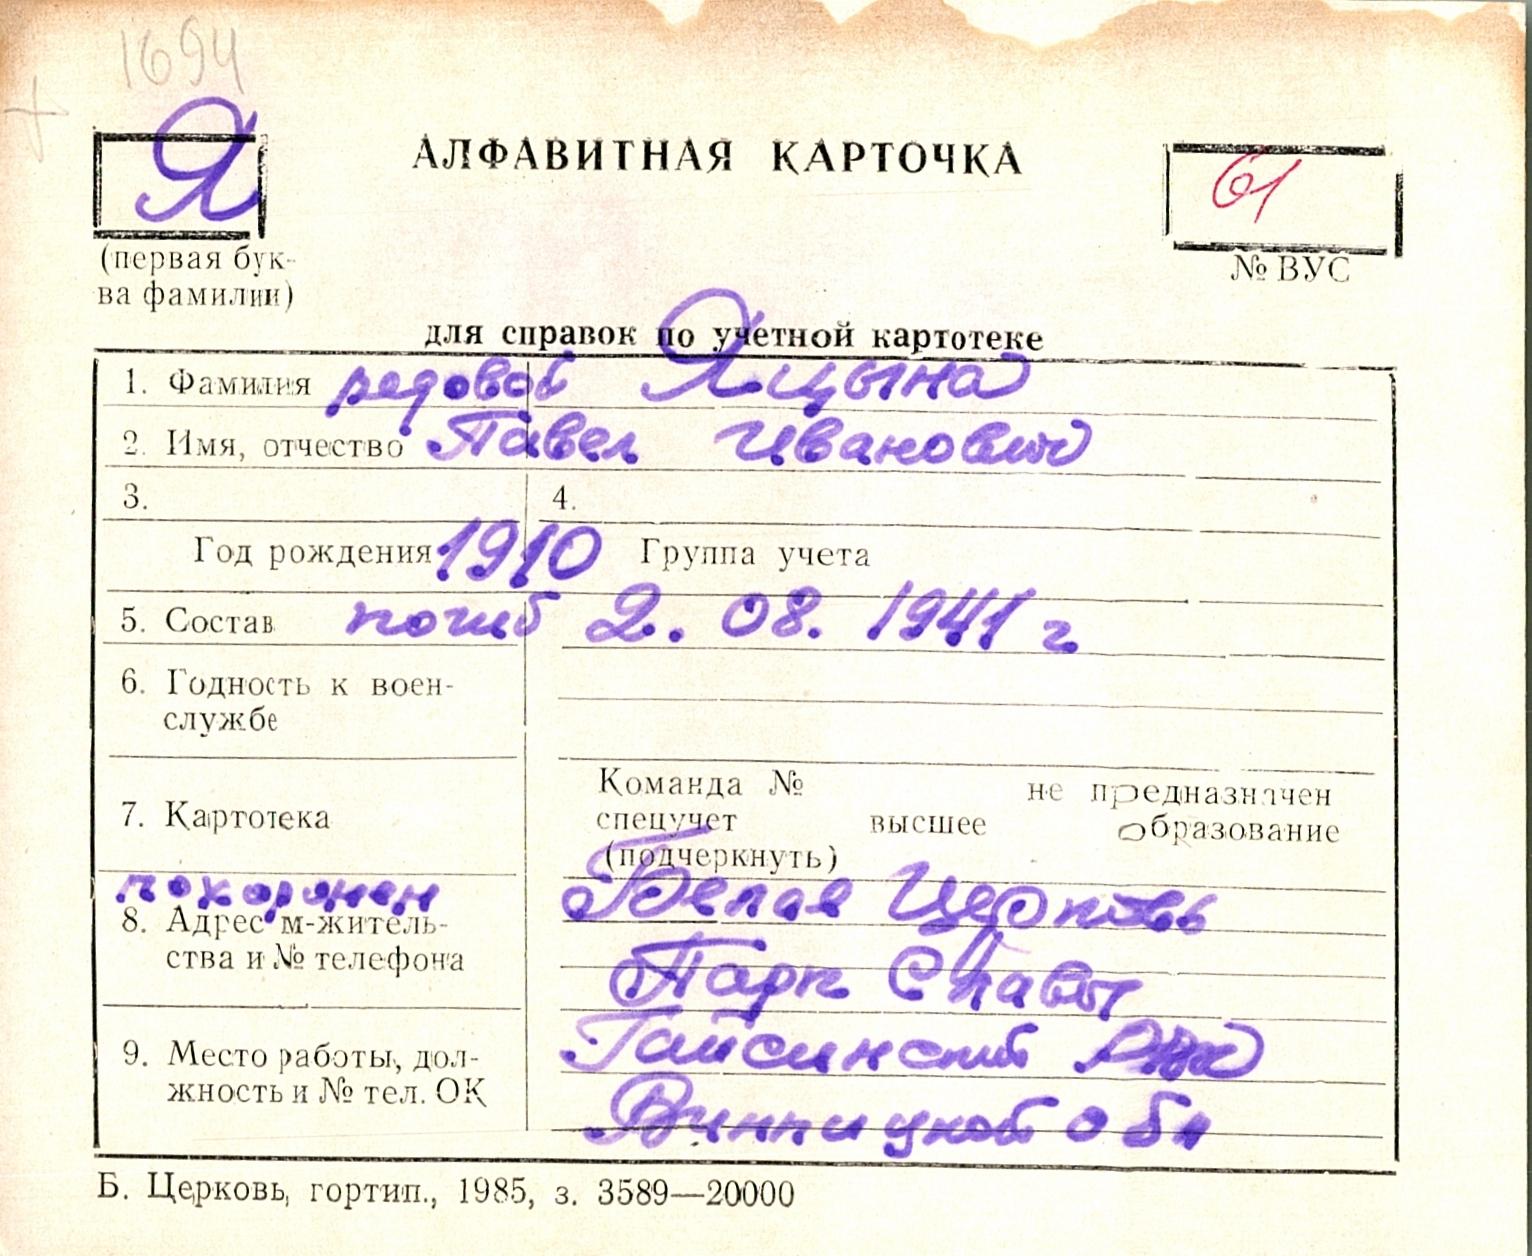 1694
Я
АЛФАВИТНАЯ КАРТОЧКА
61
(первая бук-
ва фамилии)
№ ВУС
для справок по учетной картотеке
1. Фамилия редовой Яцына
2. Имя, отчество Павел Иванович
3. 4.
Год рождения 1910 Группа учета
5. Состав погиб 2. 08. 1941 г
6. Годность к воен-
службе
Команда № не предназначен
7. Картотека
спецучет высшее образование
(подчеркнуть)
похоронен Белая Церковь
8. Адрес м-житель-
ства и № телефона
Парк Славы
9. Место работы, дол-
жность и № тел. ОК
Гайсинский РВК
Винницкой обл
Б. Церковь, гортип., 1985, з. 3589—20000